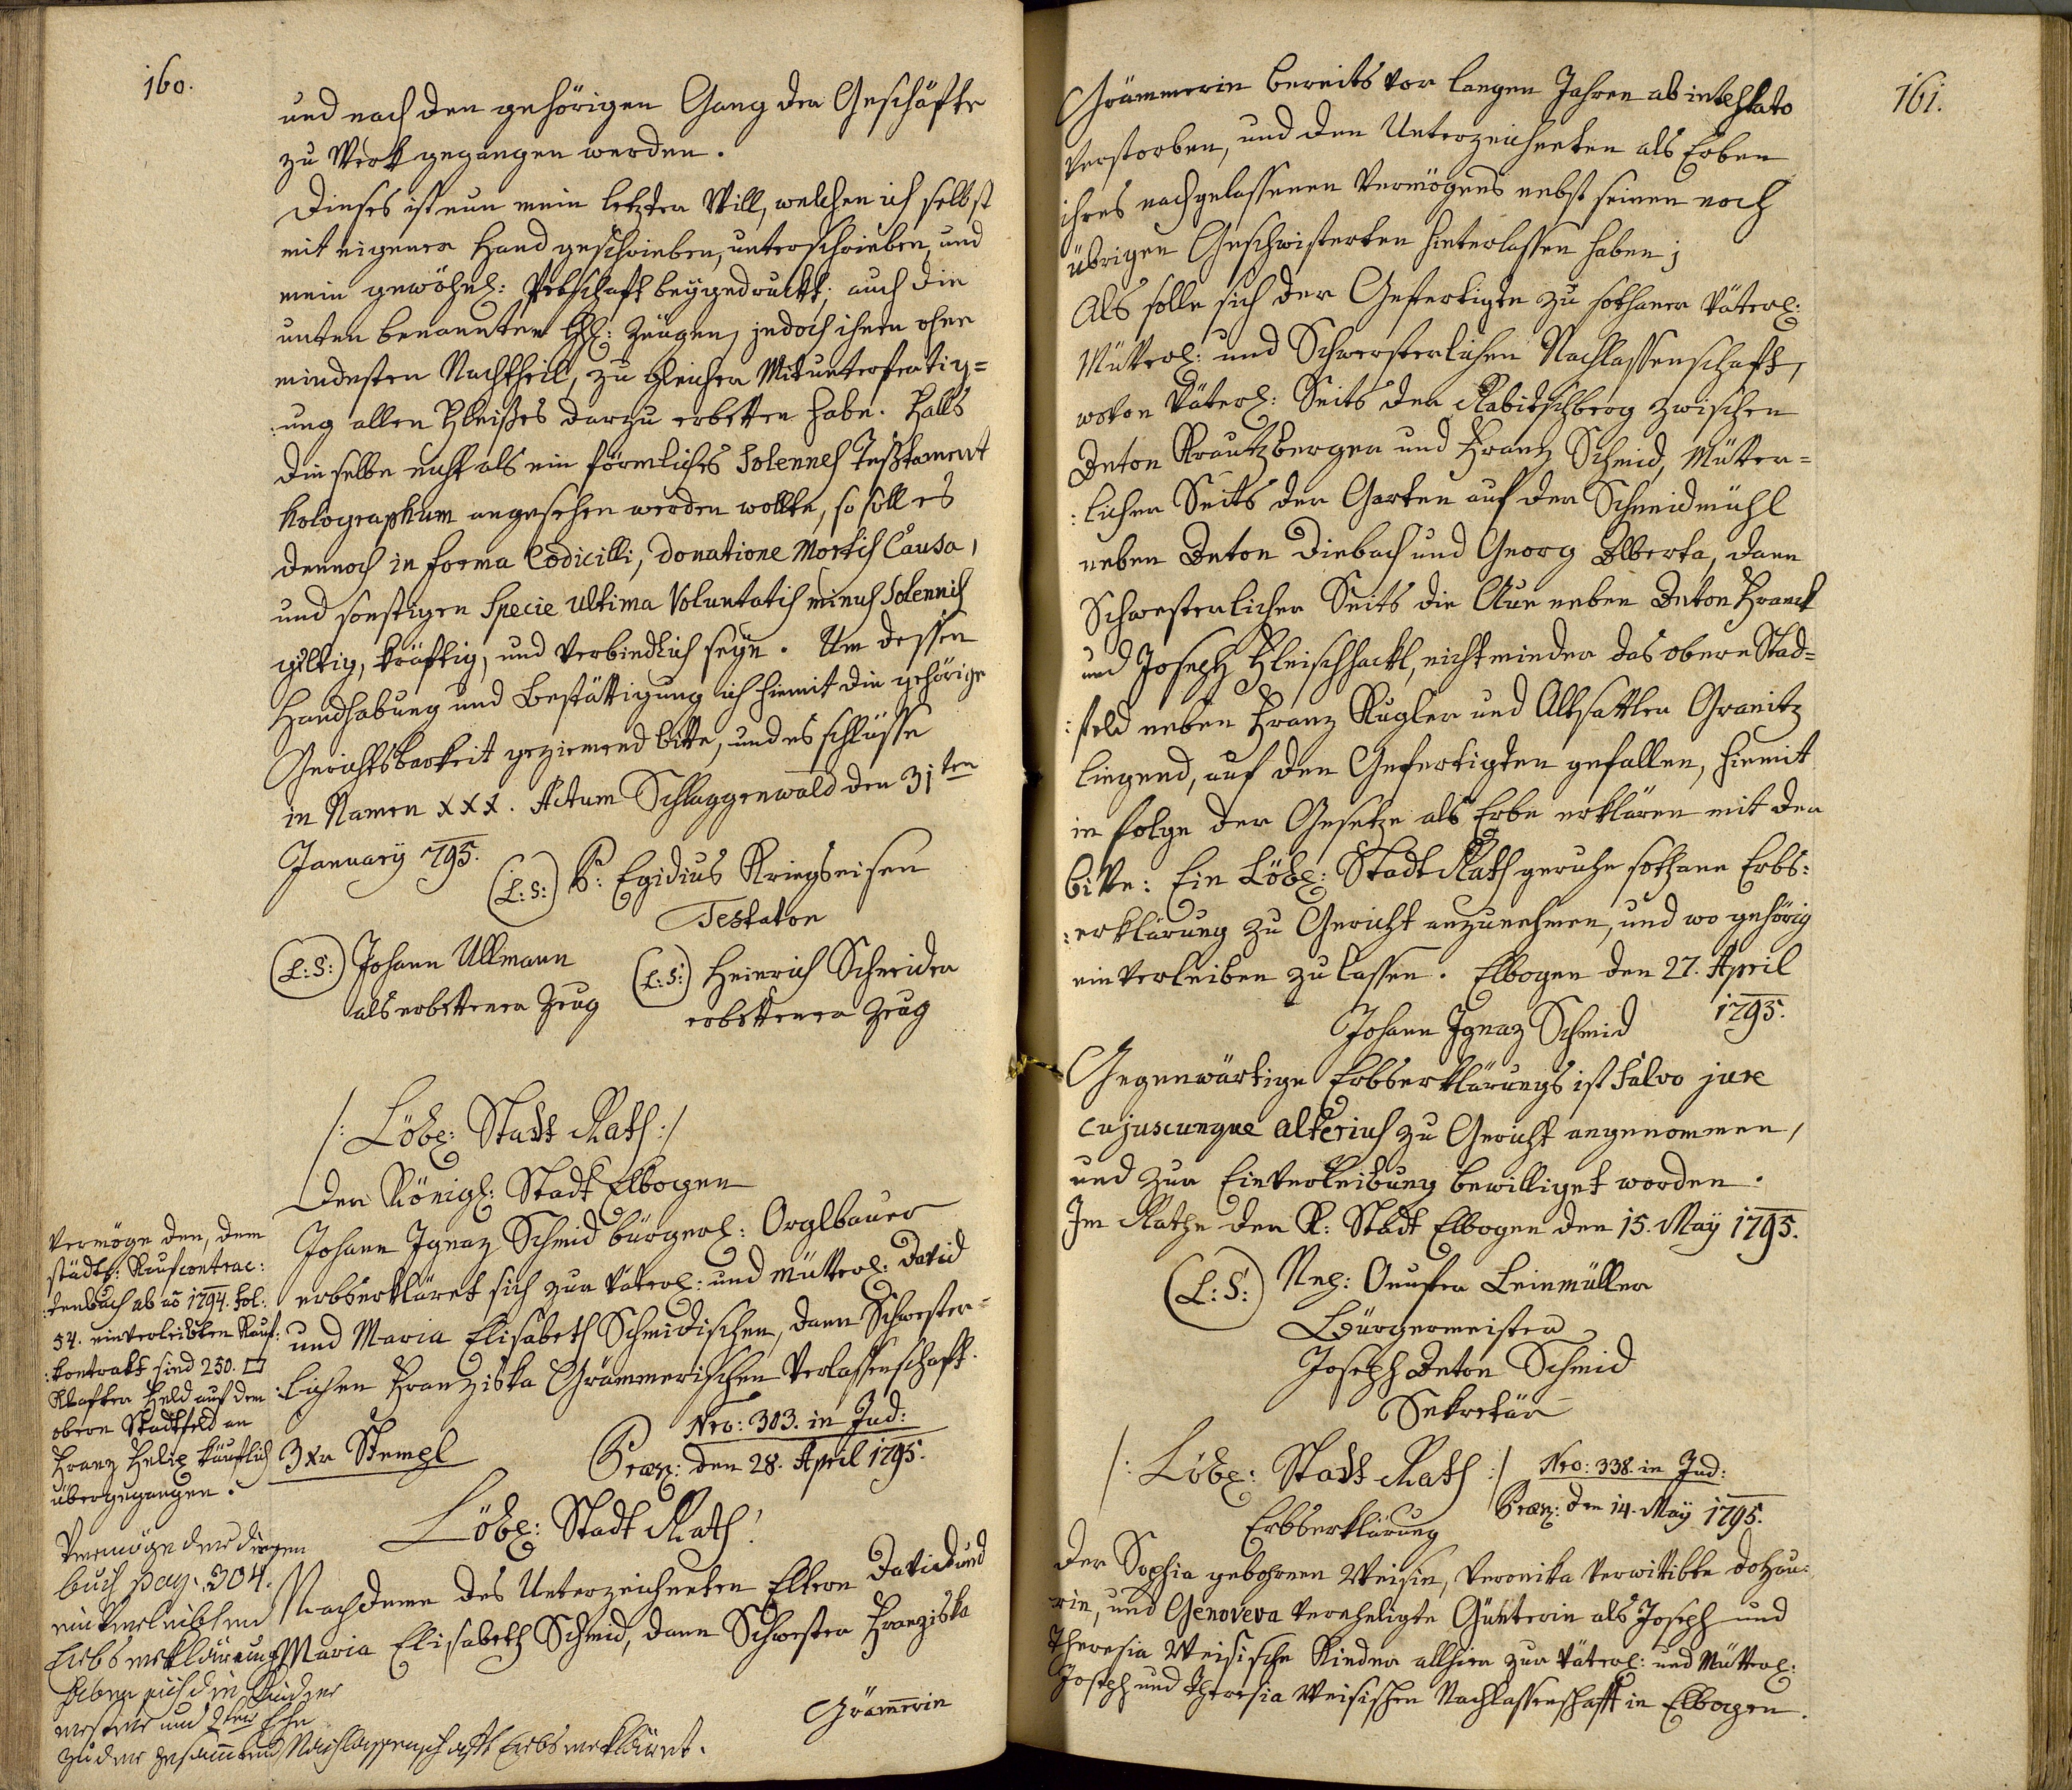 160.
und nach den gehörigen Gang der Geschäfte
zu Werk gegangen werden.
Dieses ist nun mein letzter Will, welchen ich selbst
mit eigener Hand geschrieben, unterschrieben, und
mein gewöhnl: Pettschaft beygedruckt; auch die
unten benannten Hh: Zeügen, jedoch ihnen ohne
mindesten Nachtheil, zu gleicher Mitunterfertig=
:ung allen Fleißes darzu erbetten habe. Falls
dieselbe nicht als ein förmliches Solennes Testament
holographum angesehen werden wollte, so soll es
dennoch in forma Codicilli, donatione Mortis Causa,
und sonstigen Specie ultima Voluntatis minus Solennis
giltig, kräftig, und verbindlich seyn. Um dessen
Handhabung und Bestättigung ich hiemit die gehörige
Gerichtsbarkeit geziemend bitte, und es schlüsse
in Namen XXX. Actum Schlaggenwald den 31ten
January 795.
(L:S:) P: Egidius Kriegseisen
Testator
(L:S:) Johann Ullmann
als erbettener Zeug
(L:S:) Heinrich Schneider
erbettener Zeug
/: Löbl: Stadt Rath :/
Der Königl: Stadt Elbogen
Johann Ignaz Schmid bürgerl: Orglbauer
erbserkläret sich zur Väterl: und Mütterl: David
und Maria Elisabeth Schmidischen, dann Schwester=
:lichen Franziska Grämmerischen Verlassenschaft.
3 xr Stempl
Nro: 303. in Jud:
Præs: den 28. April 1795.
Löbl: Stadt Rath!
Nachdeme des Unterzeichneten Eltern David und
Maria Elisabeth Schmid, dann Schwester Franziska
Grämerin
Vermöge den, dem
städt: Kaufcontrac:
:tenbuch ab aõ 1794. fol:
54. einverleibten Kauf:
:kontrakt sind 250. □
Klafter Feld auf dem
obern Stadtfeld an
Franz Helig käuflich
übergegangen.
Vermöge der
buch pag. 304.
einverleibten
Erbserklärung
haben sich die Kinder
erster und 2ter Ehe
zu der gesammten Nachlassenschaft Erbserkläret.
161.
Grämmerin bereits vor langen Jahren ab intestato
verstorben, und den Unterzeichneten als Erben
ihres nachgelassenen Vermögens nebst seinen noch
übrigen Geschwisterten hinterlassen haben;
Als solle sich der Gefertigte zu sothaner Väterl:
Mütterl: und Schwersterlichen Nachlassenschaft,
wovon Väterl: Seits der Rabitschberg zwischen
Anton Krautzberger und Franz Schmid, Mütter=
:licher Seits der Garten auf der Schneidmühl
neben Anton Diebach und Georg Alberta, dann
Schwesterlicher Seits die Aue neben Anton Franck
und Joseph Fleischhackl, nicht minder das obere Stad=
:feld neben Franz Kugler und Altsattler Granitz
liegend, auf den Gefertigten gefallen, hiemit
in folge der Gesetze als Erbe erklären mit der
bitte: Ein Löbl: Stadt Rath geruhe sothane Erbs:
:erklärung zu Gericht anzunehmen, und wo gehörig
einverleiben zu lassen. Elbogen den 27. April
1795.
Johann Ignaz Schmid
Gegenwärtige Erbserklärungs ist Salvo jure
cujuscunque alterius zu Gericht angenommen,
und zur Einverleibung bewilliget worden.
Im Rathe der K: Stadt Elbogen den 15. May 1795.
(L:S:) Onufer Leinmüller
Bürgermeister
Joseph Anton Schmid
Sekretär
/: Löbl: Stadt Rath :/
Nro: 338. in Jud:
Præs: den 14. May 1795.
Erbserklärung
Der Sophia gebohrnen Weisin, Veronika verwittibte Dotzau:
rin, und Genoveva verehligte Günterin als Joseph und
Theresia Weisische Kinder allhier zur Väterl: und Mütterl:
Joseph und Theresia Weisischen Nachlassenschaft in Elbogen.